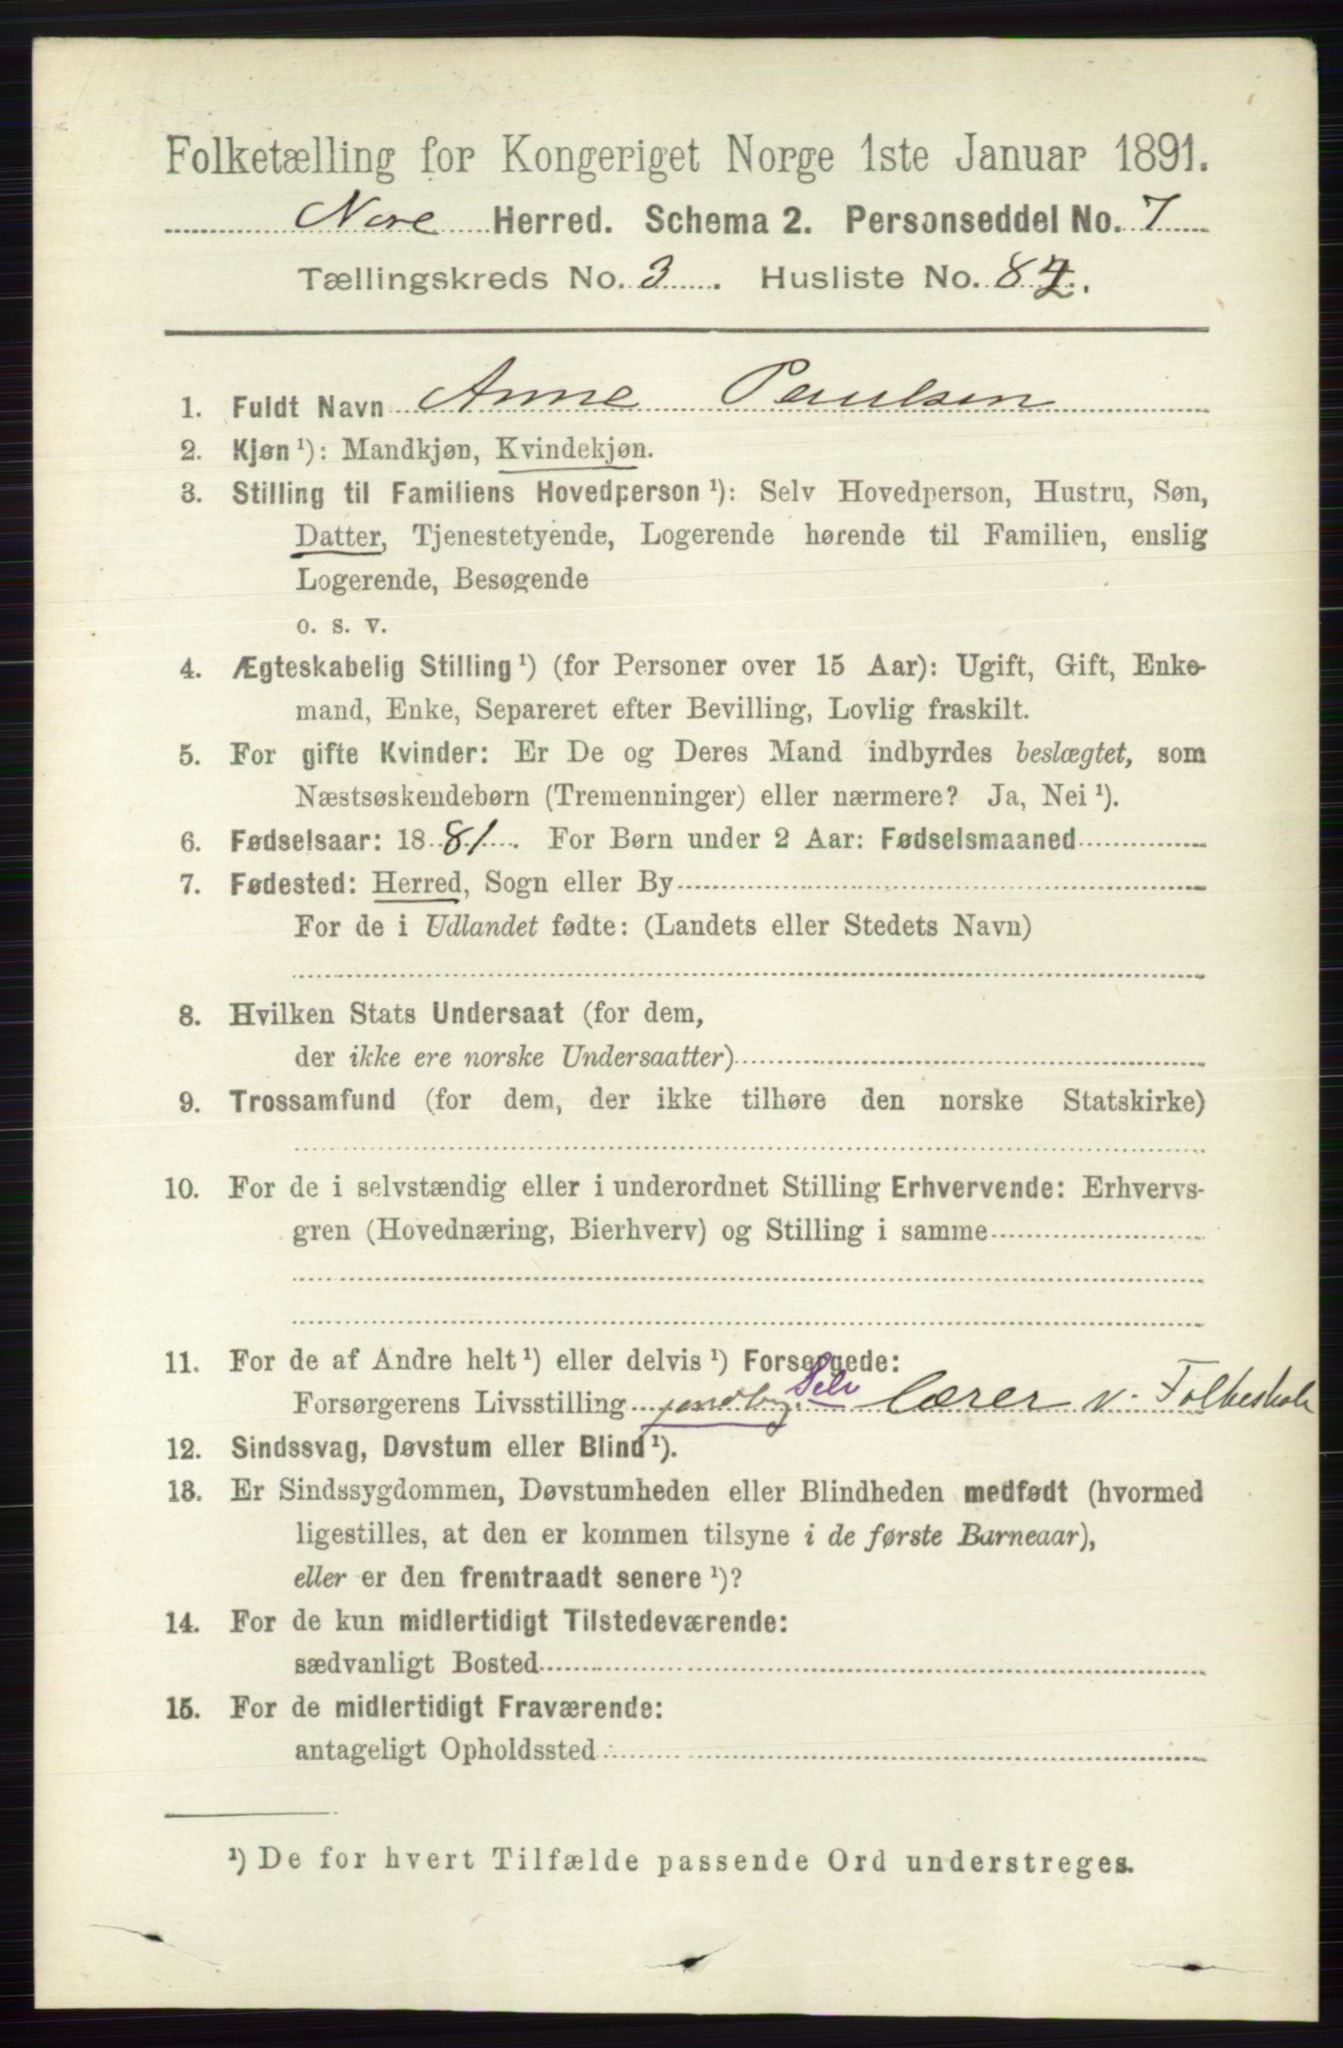 Folketælling for Kongeriget Norge 1ste Januar 1891.
Nore Herred. Schema 2. Personseddel No. 7
Tællingskreds No. 3. Husliste No. 84.
1. Fuldt Navn Anne Paulsen
2. Kjøn ¹): Mandkjøn, Kvindekjøn.
3. Stilling til Familiens Hovedperson ¹): Selv Hovedperson, Hustru, Søn,
Datter, Tjenestetyende, Logerende hørende til Familien, enslig
Logerende, Besøgende
o. s. v.
4. Ægteskabelig Stilling ¹) (for Personer over 15 Aar): Ugift, Gift, Enke-
mand, Enke, Separeret efter Bevilling, Lovlig fraskilt.
5. For gifte Kvinder: Er De og Deres Mand indbyrdes beslægtet, som
Næstsøskendebørn (Tremenninger) eller nærmere? Ja, Nei ¹).
6. Fødselsaar: 1881. For Børn under 2 Aar: Fødselsmaaned
7. Fødested: Herred, Sogn eller By
For de i Udlandet fødte: (Landets eller Stedets Navn)
8. Hvilken Stats Undersaat (for dem,
der ikke ere norske Undersaatter)
9. Trossamfund (for dem, der ikke tilhøre den norske Statskirke)
10. For de i selvstændig eller i underordnet Stilling Erhvervende: Erhvervs-
gren (Hovednæring, Bierhverv) og Stilling i samme
11. For de af Andre helt ¹) eller delvis ¹) Forsørgede:
Selv
Forsørgerens Livsstilling jordbr. Lærer v. Folkeskole
12. Sindssvag, Døvstum eller Blind ¹).
13. Er Sindssygdommen, Døvstumheden eller Blindheden medfødt (hvormed
ligestilles, at den er kommen tilsyne i de første Barneaar),
eller er den fremtraadt senere ¹)?
14. For de kun midlertidigt Tilstedeværende:
sædvanligt Bosted
15. For de midlertidigt Fraværende:
antageligt Opholdssted
¹) De for hvert Tilfælde passende Ord understreges.